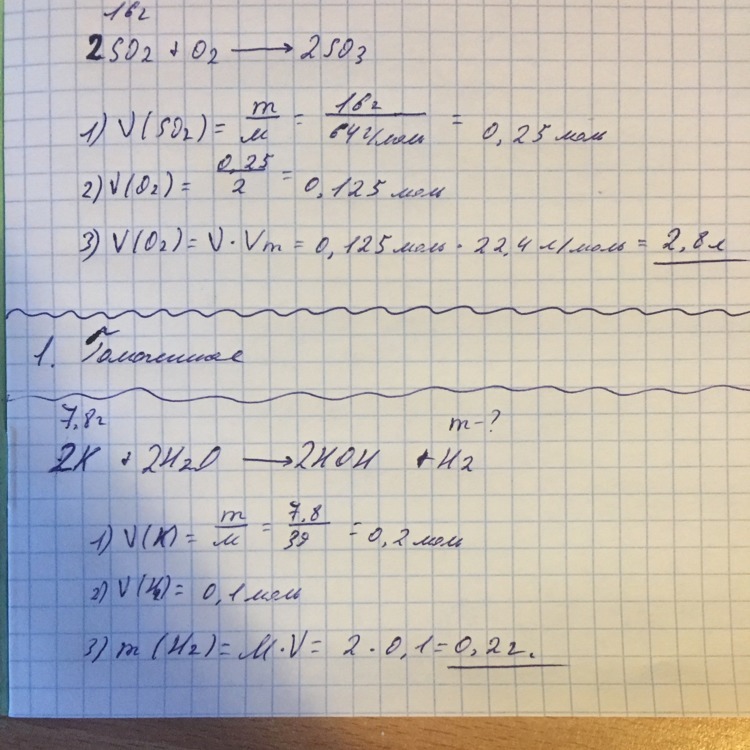 16г
2SO₂ + O₂ → 2SO₃
1) V(SO₂) = m/M = 16г/64г/моль = 0,25 моль
2) V(O₂) = 0,25/2 = 0,125 моль
3) V(O₂) = V · Vm = 0,125 моль · 22,4 л/моль = 2,8 л
1.
7,8г m-?
2K + 2H₂O → 2KOH + H₂
1) V(K) = m/M = 7,8/39 = 0,2 моль
2) V(H₂) = 0,1 моль
3) m(H₂) = M·V = 2 · 0,1 = 0,2г.